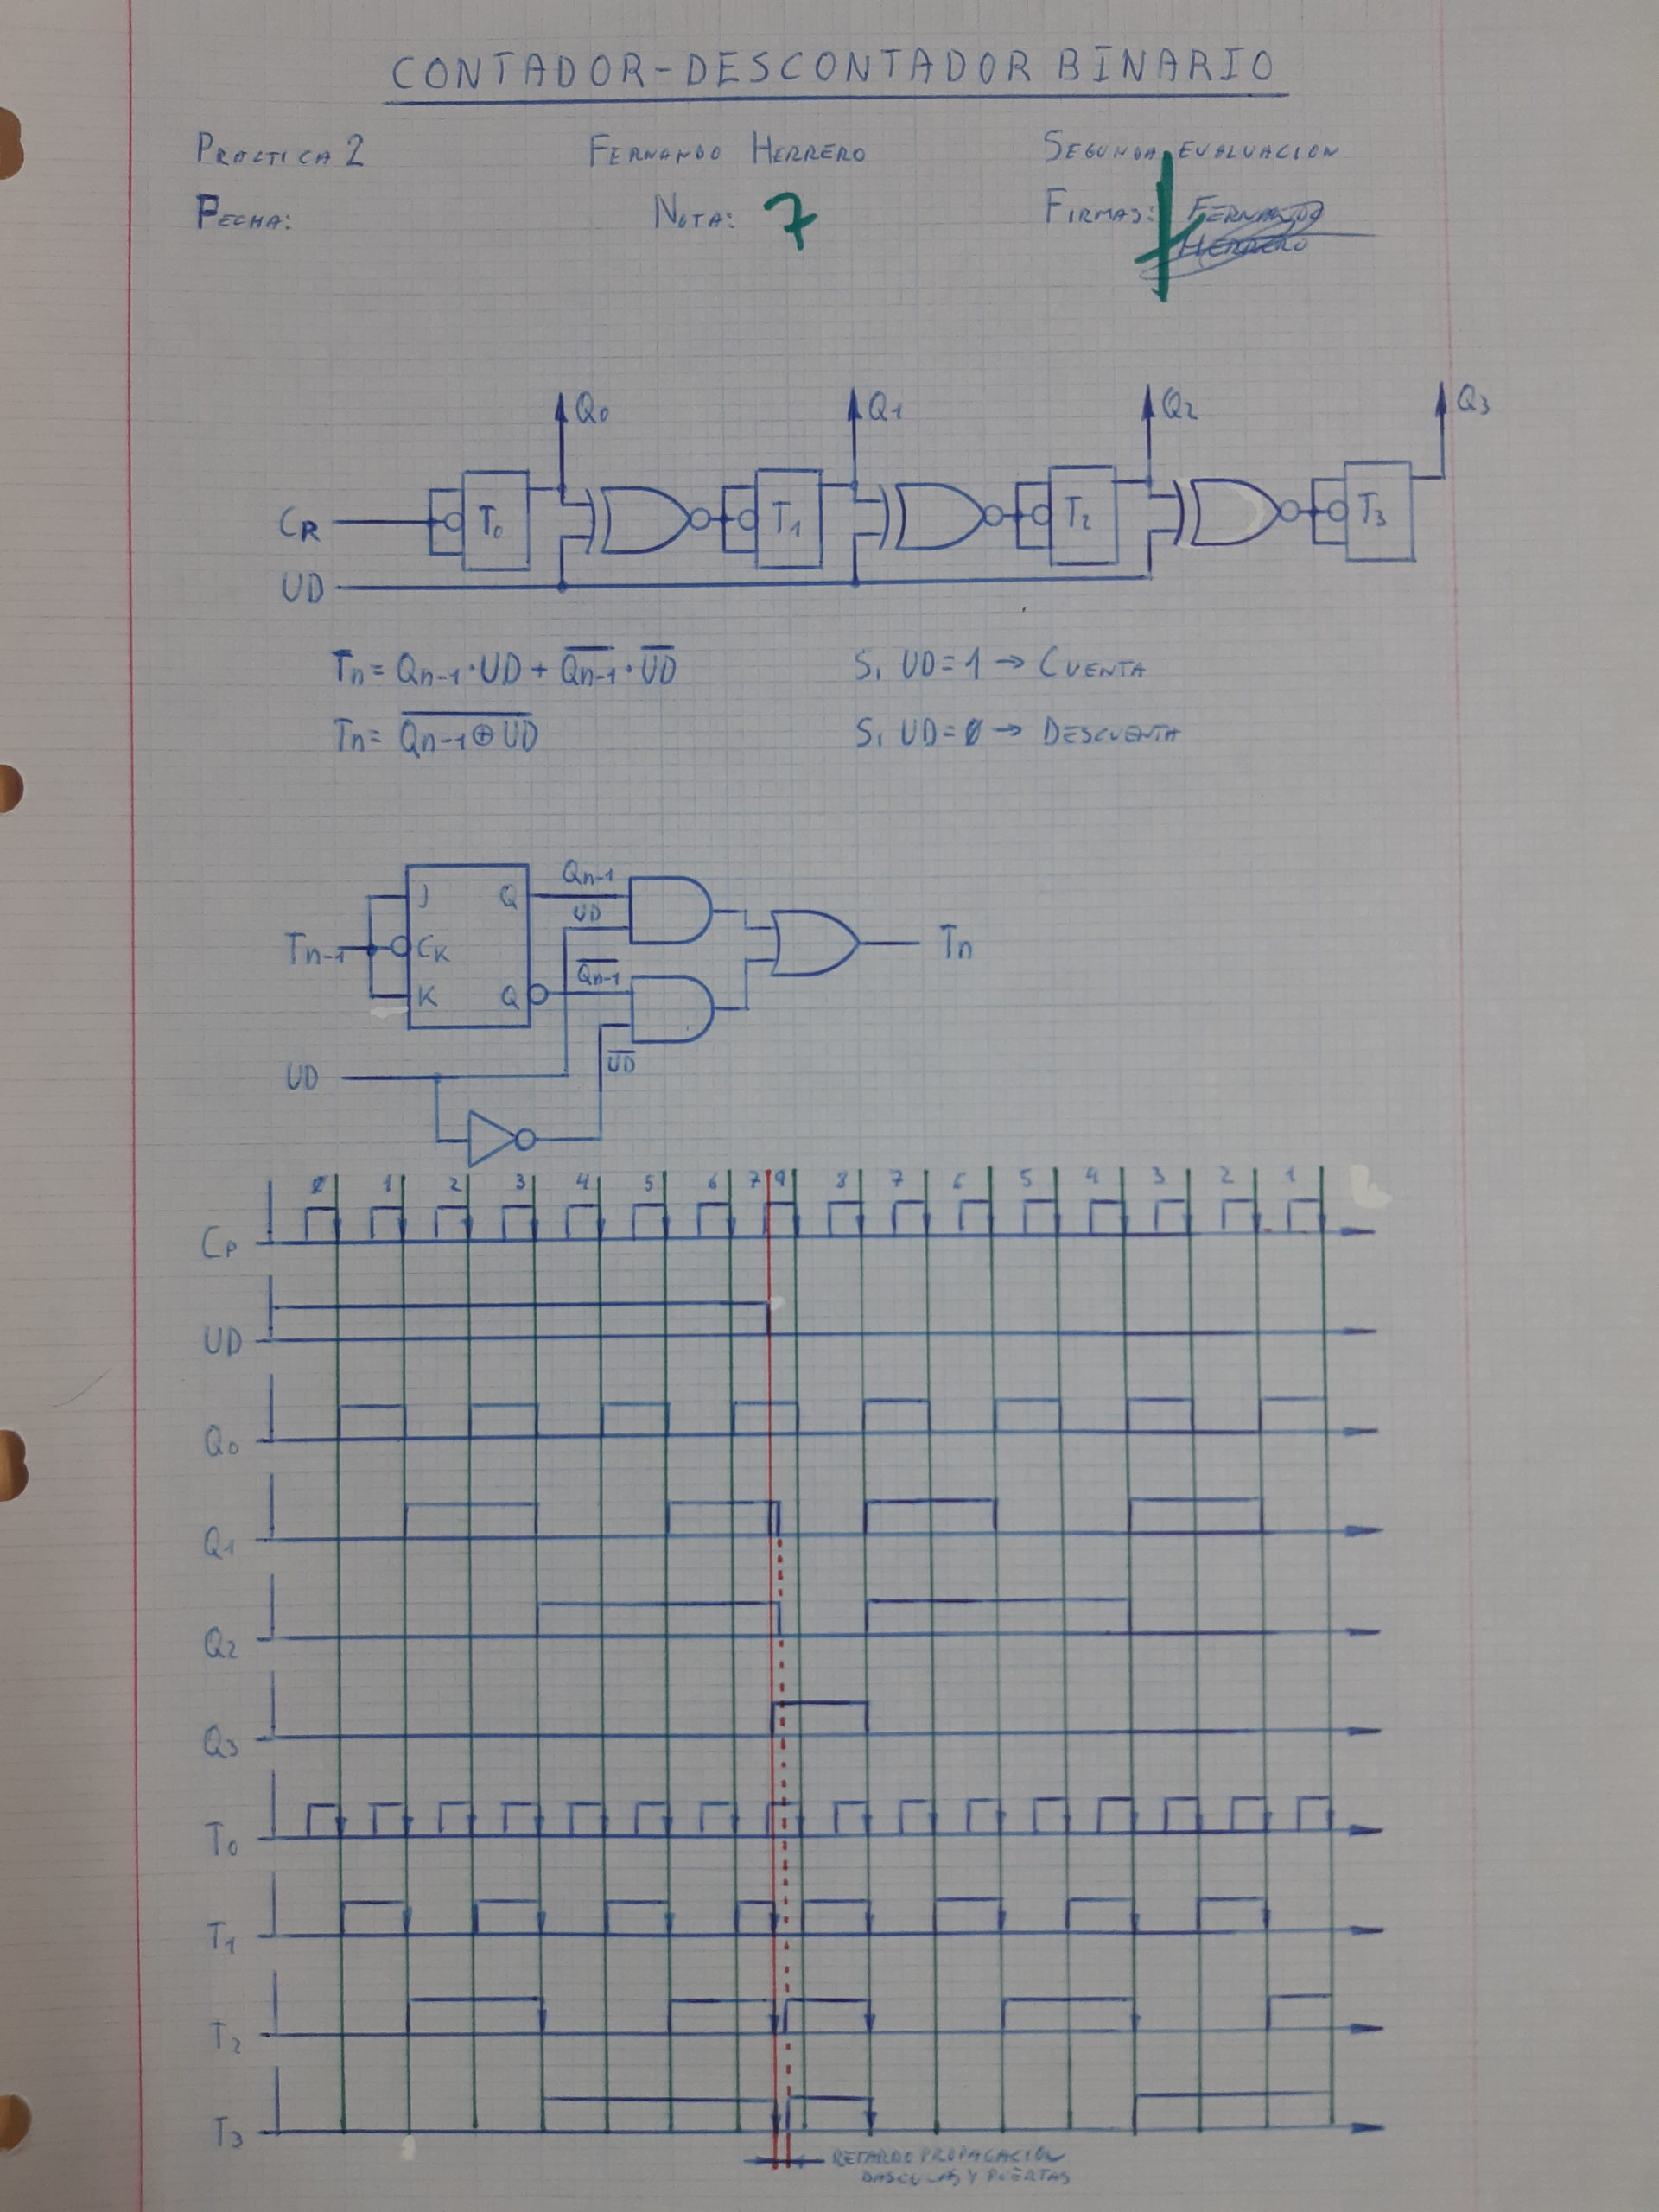 CONTADOR-DESCONTADOR BINARIO
PRACTICA 2 FERNANDO HERRERO SEGUNDA EVALUACION
FECHA: NOTA: 7 FIRMAS: FERNANDO
HERRERO
Q0 Q1 Q2 Q3
CR T0 T1 T2 T3
UD
Tn = Qn-1 · UD + \overline{Qn-1} · \overline{UD} Si UD = 1 → CUENTA
Tn = \overline{Qn-1 ⊕ UD} Si UD = 0 → DESCUENTA
Qn-1
J Q
UD
Tn-1 CK Tn
\overline{Qn-1}
K Q
\overline{UD}
UD
0 1 2 3 4 5 6 7 9 8 7 6 5 4 3 2 1
CP
UD
Q0
Q1
Q2
Q3
T0
T1
T2
T3
RETARDO PROPAGACION
BASCULAS Y PUERTAS